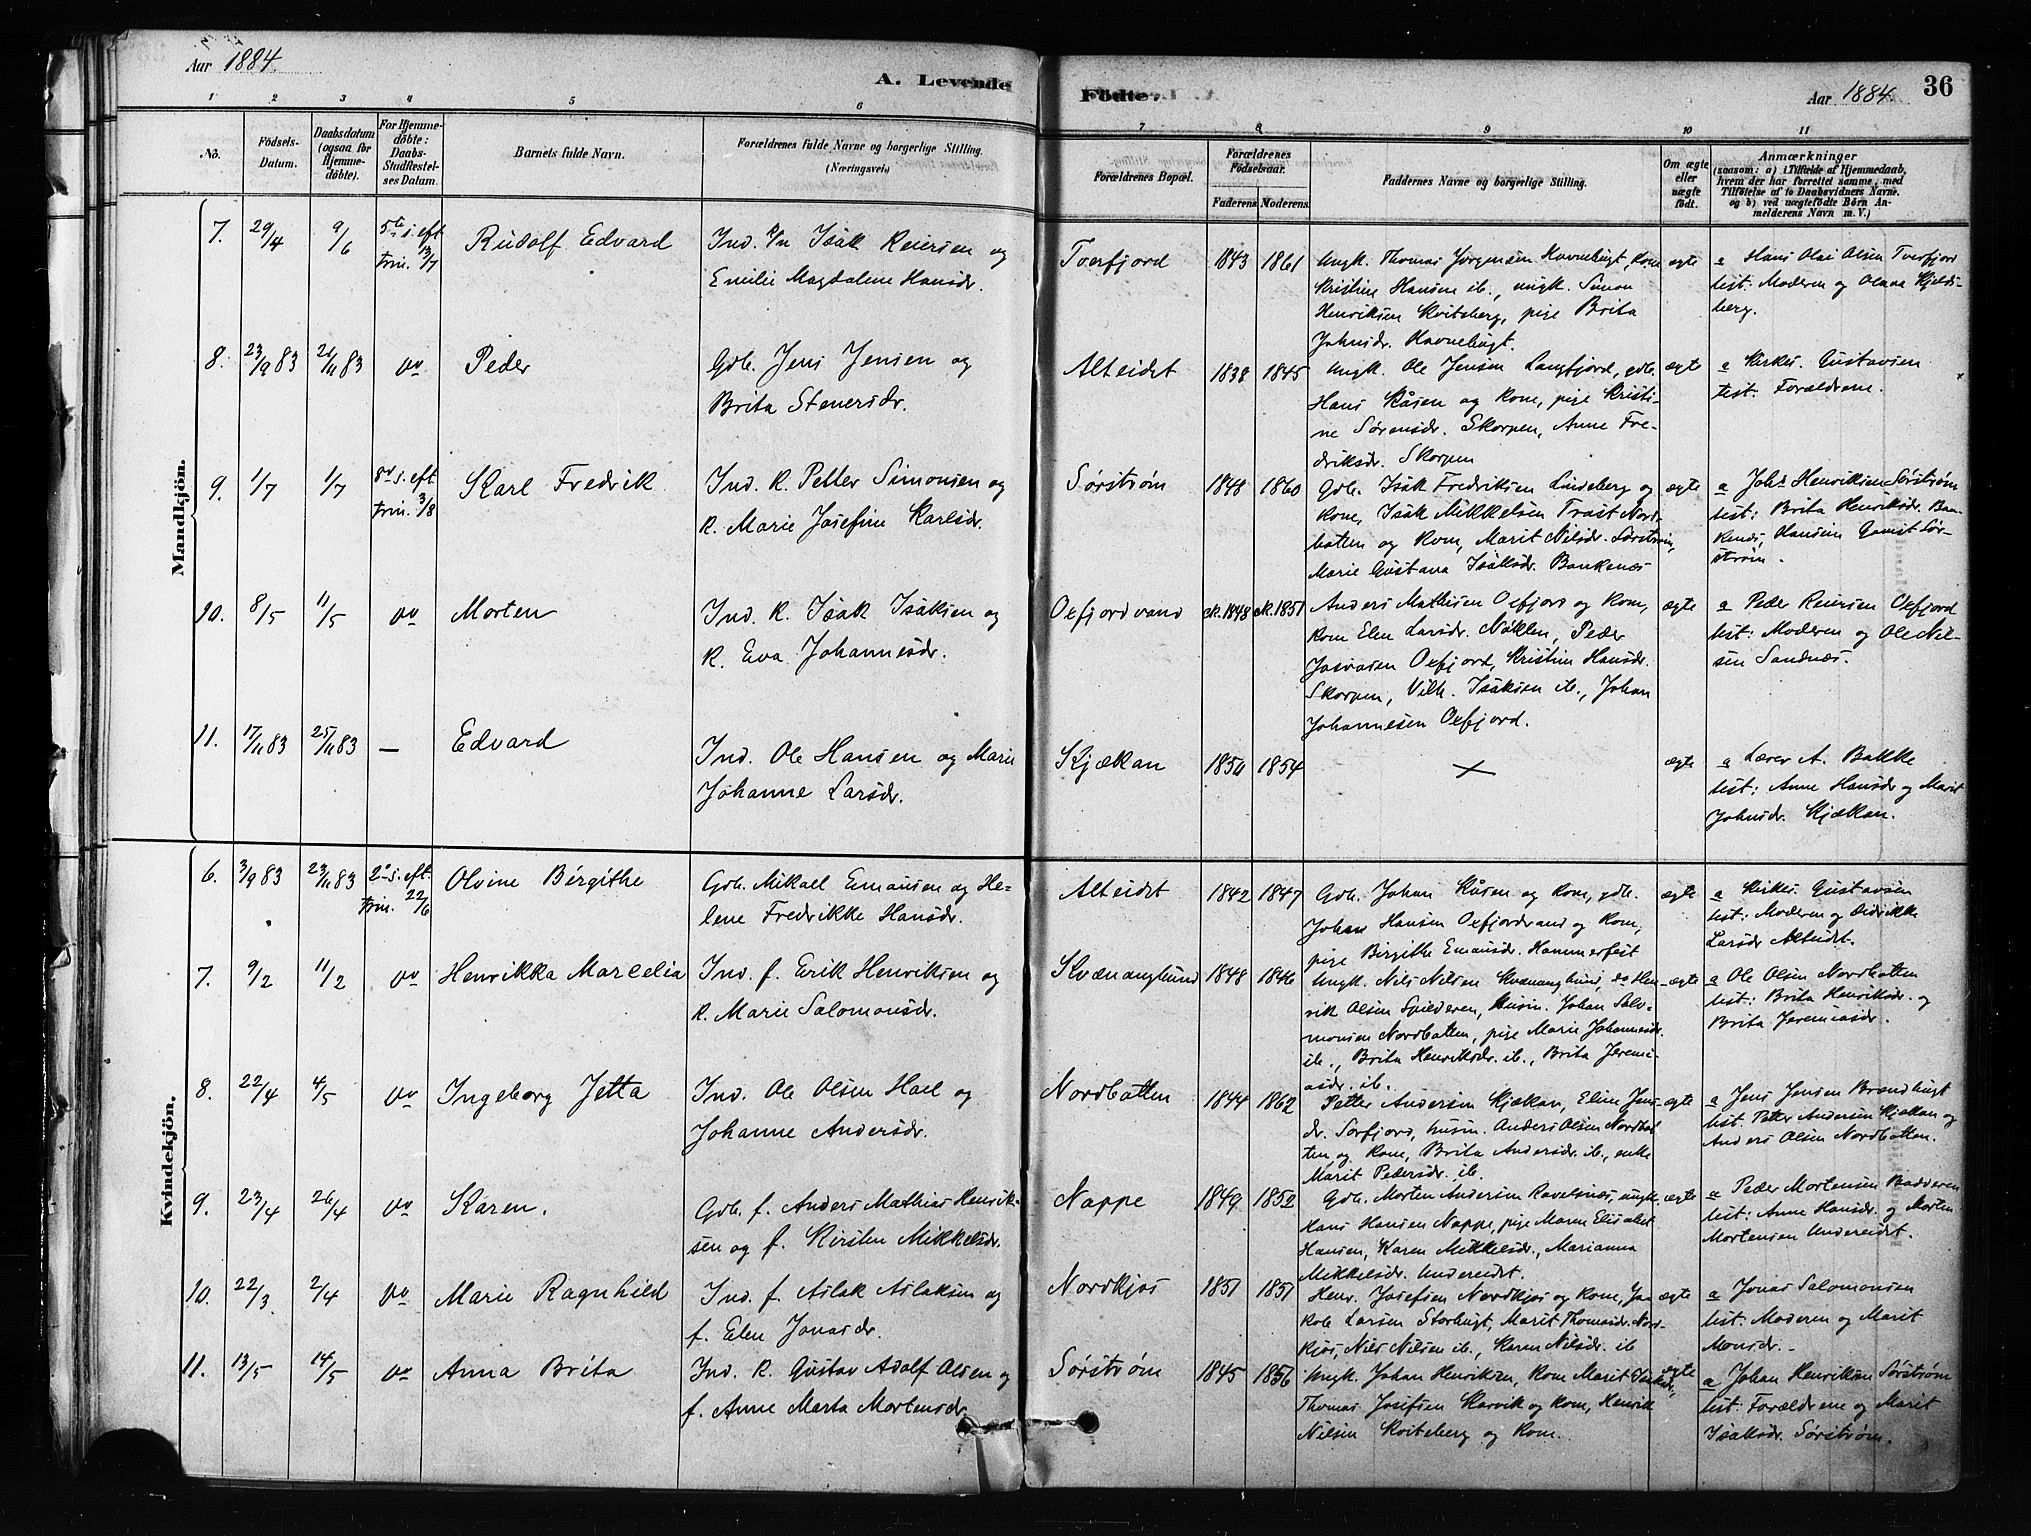 Aar 1884.
A. Levende
Fødte.
Aar 1884.
36
1 2 3 4 5 6 7 8 9 10 11
No.
Fødsels-
Datum.
Daabsdatum
(ogsaa for
Hjemme-
døbte).
For Hjemme-
døbte:
Daabs-
Stadfæstel-
ses Datum.
Barnets fulde Navn.
Forældrenes fulde Navne og borgerlige Stilling.
(Næringsvei)
Forældrenes Bopæl.
Forældrenes
Fødselsaar.
Faderens Moderens
Faddernes Navne og borgerlige Stilling.
Om ægte
eller
uægte
født.
Anmærkninger
(saasom: a) i Tilfælde af Hjemmedaab,
hvem der har forrettet samme, med
Tilføielse af to Daabsvidners Navne.
og b) ved uægtefødte Børn An-
melderens Navn m. V.)
Mandkjøn.
7. 29/4 9/6 5te s. eft
trin. 13/7
Rudolf Edvard
Ind. k/n Isak Reiersen og
Emilie Magdalene Hansdr.
Tverfjord 1843 1861
Ungk. Thomas Jørgensen Havnebugt, Kone
Kristine Hansen ib., ungk. Simon
Henriksen Kviteberg, pige Brita
Johnsdr. Havnebugt.
ægte
a Hans Olai Olsen Tverfjord
test: Moderen og Olava Kjelds-
berg.
8. 23/9 83 21/11 83 do
Peder
Gdb. Jens Jensen og
Brita Stenersdr.
Alteidet 1838 1845
Ungk. Ole Jensen Langfjord, gdb.
Hans Kåsen og Kone, pige Kristi-
ne Sørensdr. Skorpen, Anne Fre-
driksdr. Skorpen
ægte
a Kirkes. Gustavsen
test: Forældrene.
9. 1/7 1/7 8de s. eft
trin. 3/8
Karl Fredrik
Ind. K. Petter Simonsen og
K. Marie Josefine Karlsdr.
Sørstrøm 1848 1860
Gdb. Isak Fredriksen Lindeberg og
Kone, Isak Mikkelsen Trast Nord-
botten og Kone, Marit Nilsdr. Sørstrøm,
Marie Gustava Isaksdr. Bankenæs
ægte
a Johs Henriksen Sørstrøm
test: Brita Henriksdr. Ban-
kenæs, Hansine Qamst Sør-
strøm.
10. 8/5 11/5 do
Morten
Ind. K. Isak Isaksen og
K. Eva Johannesdr.
Oxfjordvand ck. 1848 ck. 1851
Anders Mathisen Oxfjord og Kone,
Kone Elen Larsdr. Nøklen, Peder
Josvasen Oxfjord, Kristine Hansdr.
Skorpen, Vilh. Isaksen ib., Johan
Johannesen Oxfjord.
ægte
a Peder Reiersen Oxfjord
test: Moderen og Ole Nil-
sen Sandnæs.
11. 17/11 83 25/11 83 —
Edvard
Ind. Ole Hansen og Marie
Johanne Larsdr.
Kjækan 1850 1854
×
ægte
a Lærer A. Bakke
test: Anne Hansdr og Marit
Johnsdr. Kjækan.
Kvindekjøn.
6. 3/9 83 23/11 83 2den s. eft.
trin. 22/6
Olvine Birgithe
Gdb. Mikael Emausen og He-
lene Fredrikke Hansdr.
Alteidet 1842 1847
Gdb. Johan Kåsen og Kone, gdb.
Johan Hansen Oxfjordvand og Kone,
pige Birgithe Emausdr. Hammerfest
ægte
a Kirkes. Gustavsen
test: Moderen og Didrikke
Larsdr Alteidet.
7. 9/2 11/2 do
Henrikka Marcelia
Ind. f. Erik Henriksen og
K. Marie Salomonsdr.
Kvænangbund 1848 1846
Ungk. Nils Nilsen Kvænangbund, do Hen-
rik Olsen Spilderen, husm. Johan Salo-
monsen Nordbotten, pige Marie Johannesdr.
ib., Brita Henriksdr. ib., Brita Jeremi-
asdr. ib.
ægte
a Ole Olsen Nordbotten
test: Brita Henriksdr. og
Brita Jeremiasdr.
8. 22/4 4/5 do
Ingeborg Jetta
Ind. Ole Olsen Hael og
Johanne Andersdr.
Nordbotten 1844 1862
Petter Andersen Kjækan, Eline Jens-
dr. Sørfjord, husm. Anders Olsen Nordbot-
ten og Kone, Brita Andersdr. ib., enke
Marit Pedersdr. ib.
ægte
a Jens Jensen Brændbugt
test: Petter Andersen Kjækan og
Anders Olsen Nordbotten.
9. 23/4 26/4 do
Karen.
Gdb. f. Anders Mathias Henrik-
sen og f. Kirsten Mikkelsdr.
Nappe 1849 1852
Gdb. Morten Andersen Ravelsnæs, ungk.
Hans Hansen Nappe, pige Maren Elisabet
Hansen, Karen Mikkelsdr., Marianna
Mikkelsdr. Undereidet.
ægte
a Peder Mortensen Badderen
test: Anne Hansdr. og Morten
Mortensen Undereidet.
10. 22/3 2/4 do
Marie Ragnhild
Ind. f. Aslak Aslaksen og
f. Elen Jonasdr.
Nordkjos 1851 1851
Henr. Josefsen Nordkjos og Kone, Ja-
kob Larsen Storbugt, Marit Thomasdr. Nord-
kjos, Nils Nilsen ib., Karen Nilsdr. ib
ægte
a Jonas Salomonsen
test: Moderen og Marit
Monsdr.
11. 13/5 14/5 do
Anna Brita
Ind. K. Gustav Adolf Olsen og
f. Anne Marta Mortensdr.
Sørstrøm 1845 1856
Ungk. Johan Henriksen, Kone Marit Isaksdr.,
Thomas Josefsen Karvik og Kone, Henrik
Nilsen Kviteberg og Kone.
ægte
a Johan Henriksen Sørstrøm
test: Forældrene og Marit
Isaksdr. Sørstrøm.